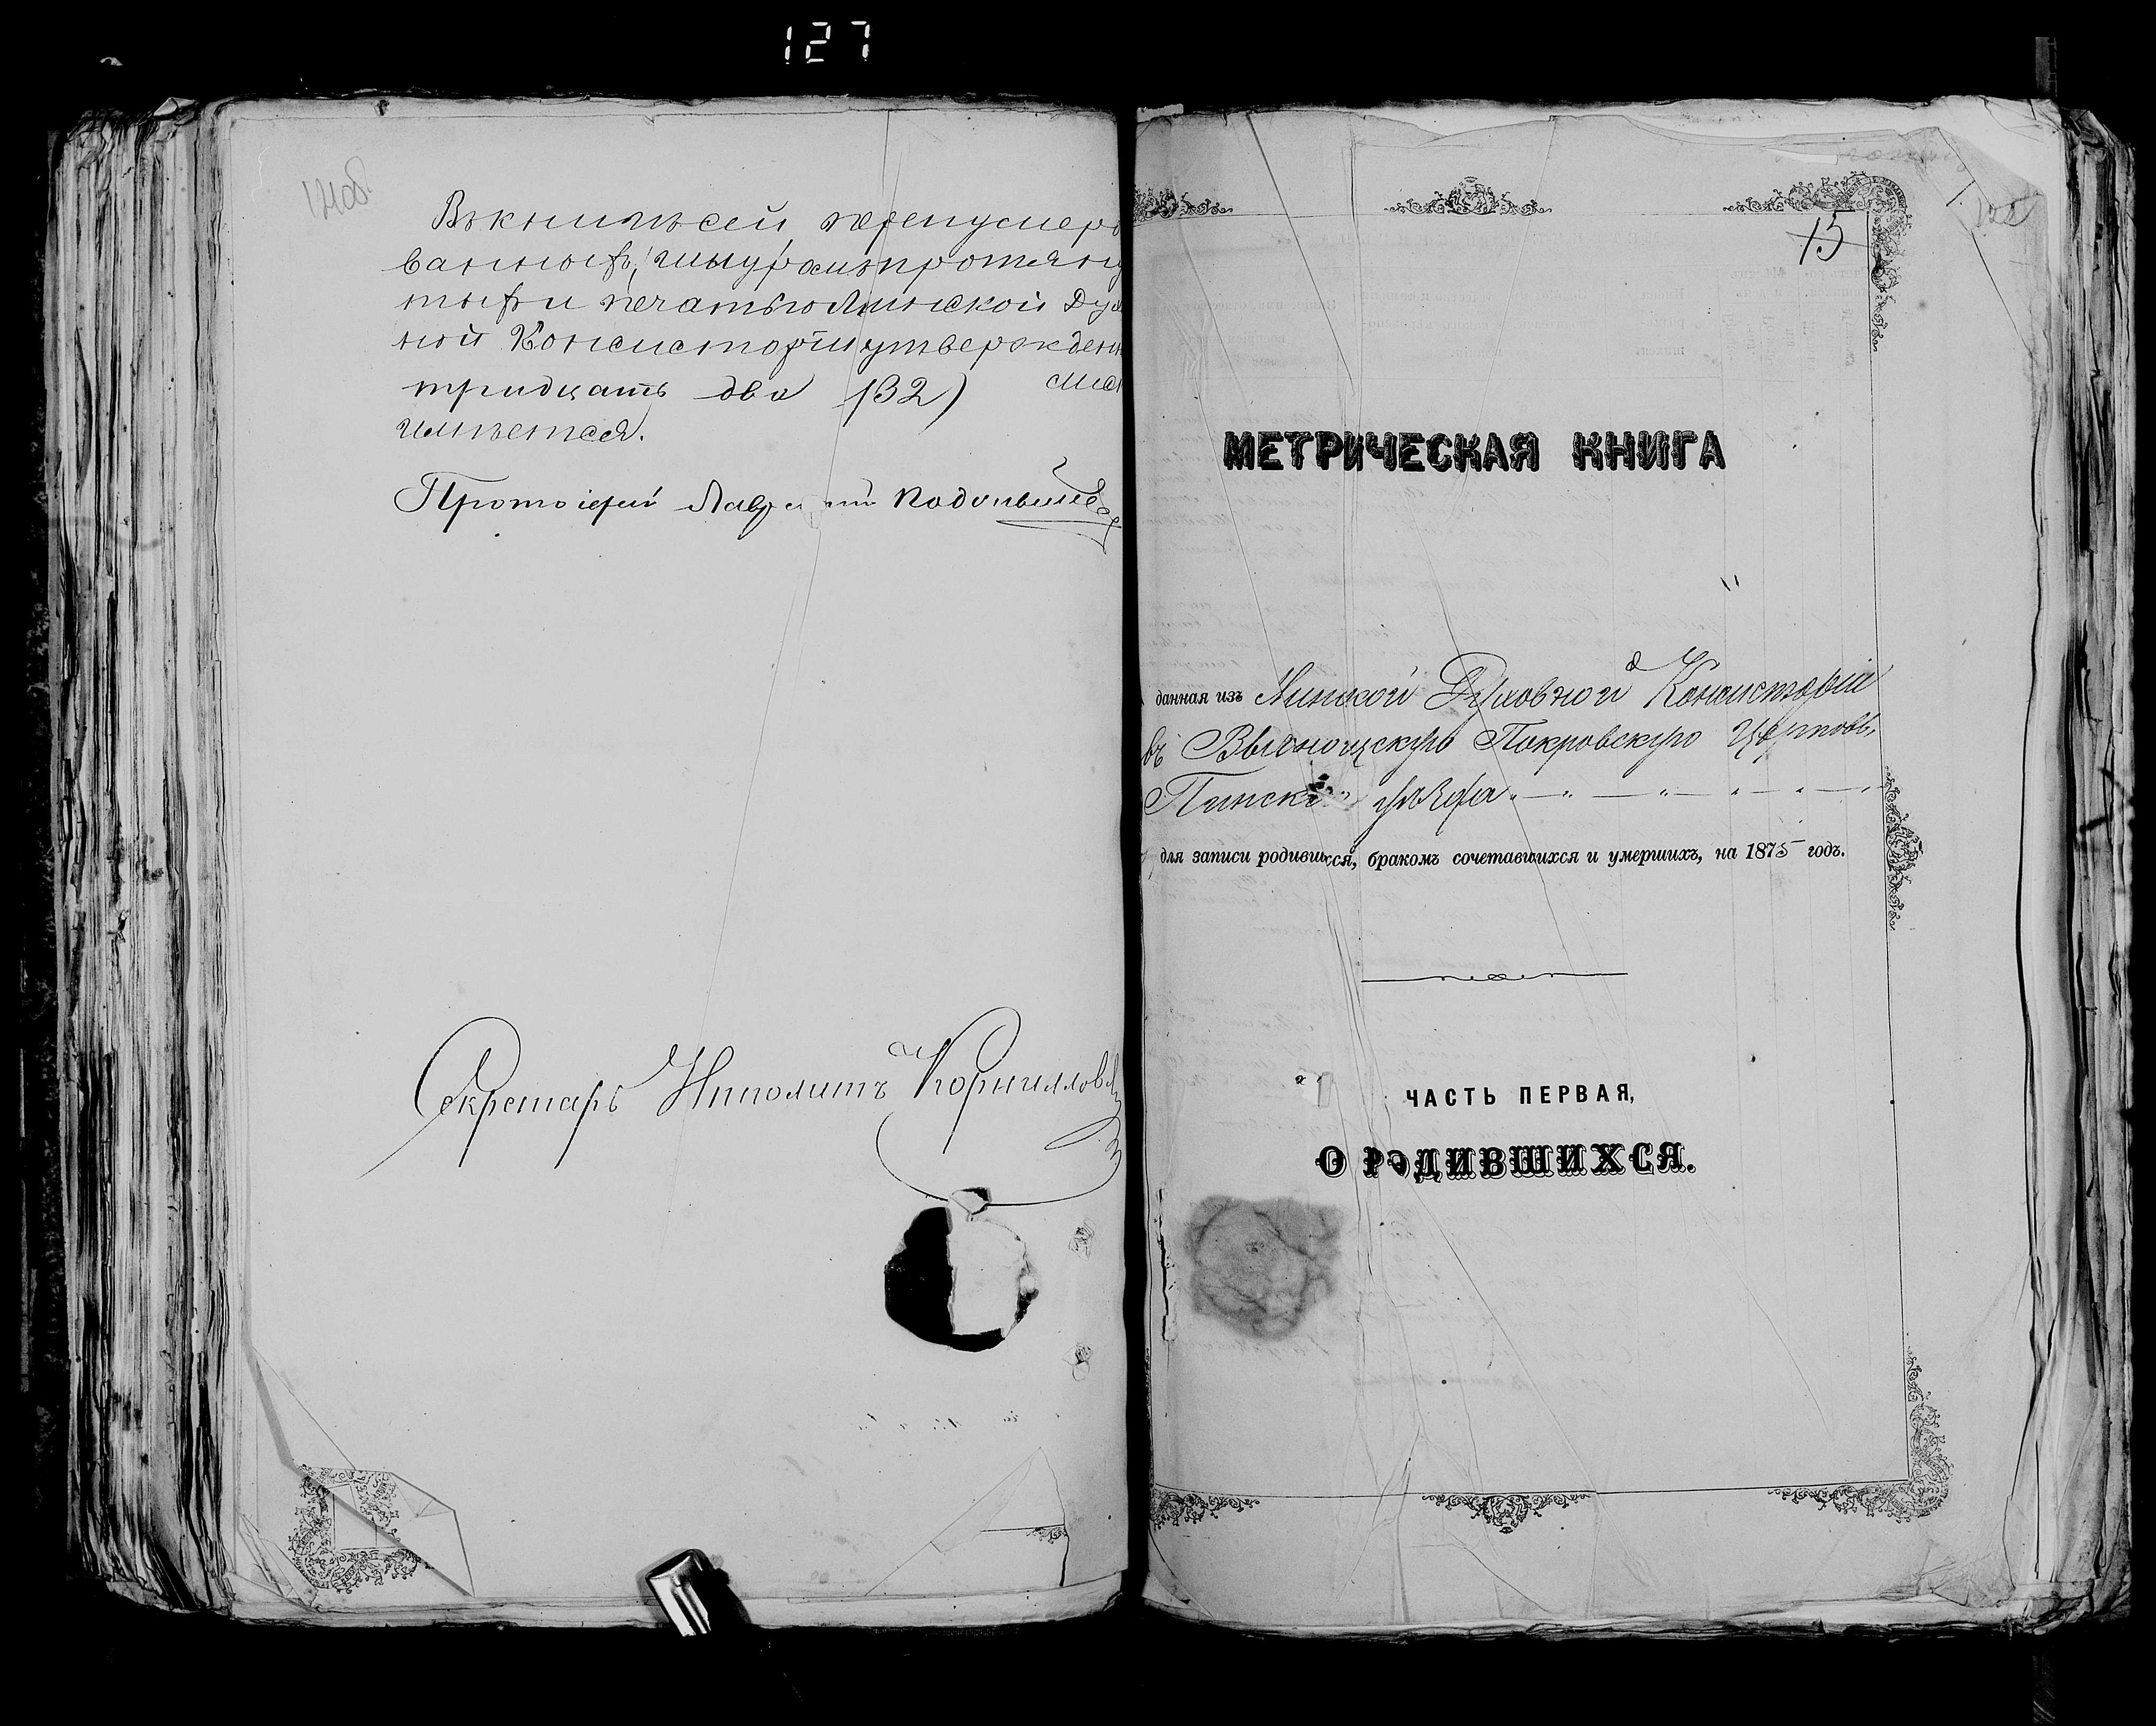 127
Въ книгѣ сей перенумеро
ванныхъ, шнуромъ протяну
тыхъ и печатью Минской Дух
ной Консисторіи утвержден
тридцать два (32) лис
имѣется.
Протоіерей
Секретарь Ипполитъ
15
МЕТРИЧЕСКАЯ КНИГА
данная изъ Минской Духовной Консисторіи
въ Покровскую Церковь,
Пинска уѣзда
для записи родившихся, бракомъ сочетавшихся и умершихъ, на 1875 годъ.
ЧАСТЬ ПЕРВАЯ,
О РОДИВШИХСЯ.